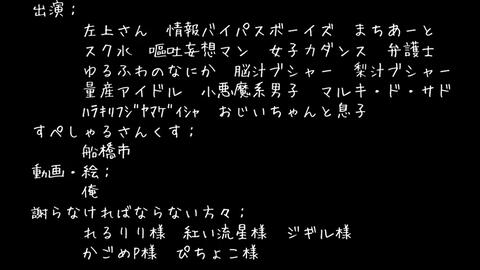 出演；
左上さん　情報バイパスボーイズ　まちあーと
スク水　嘔吐妄想マン　女子カダンス　弁護士
ゆるふわのなにか　脳汁ブシャー　梨汁ブシャー
量産アイドル　小悪魔系男子　マルキ・ド・サド
ﾊﾗｷﾘﾌｼﾞﾔﾏｹﾞｲｼｬ　おじいちゃんと息子
すぺしゃるさんくす；
船橋市
動画・絵；
俺
謝らなければならない方々；
れるりり様　紅い流星様　ジギル様
かごめP様　ぴちょこ様